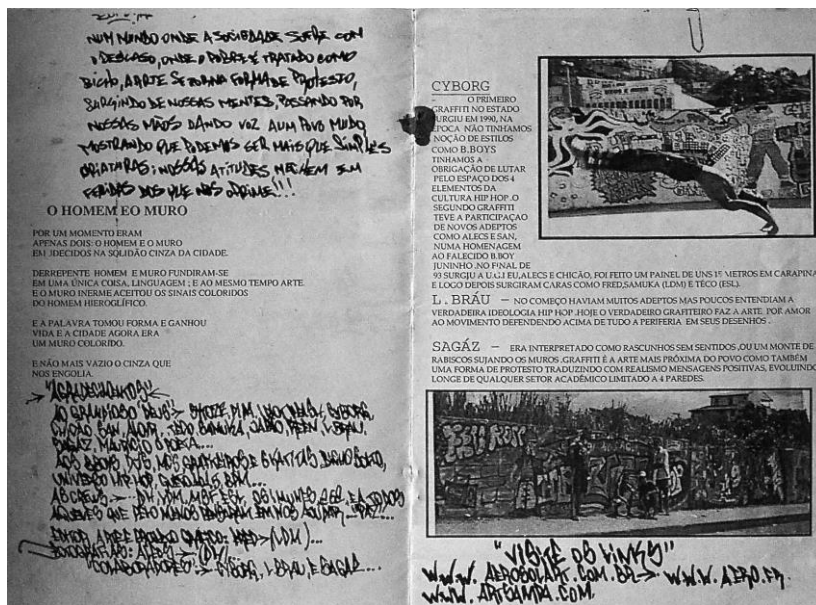 NUM MUNDO ONDE A SOCIEDADE SOFRE COM
O DESCASO, ONDE O POBRE É TRATADO COMO
BICHO, A ARTE SE TORNA FORMA DE PROTESTO,
SURGINDO DE NOSSAS MENTES, PASSANDO POR
NOSSAS MÃOS DANDO VOZ A UM POVO MUDO
MOSTRANDO QUE PODEMOS SER MAIS QUE SIMPLES
CRIATURAS; NOSSAS ATITUDES MECHEM EM
FERIDAS DOS QUE NOS OPRIME!!!
O HOMEM EO MURO
POR UM MOMENTO ERAM
APENAS DOIS: O HOMEM E O MURO
EMUDECIDOS NA SOLIDÃO CINZA DA CIDADE.
DERREPENTE HOMEM E MURO FUNDIRAM-SE
EM UMA ÚNICA COISA, LINGUAGEM ; E AO MESMO TEMPO ARTE.
E O MURO INERME ACEITOU OS SINAIS COLORIDOS
DO HOMEM HIEROGLÍFICO.
E A PALAVRA TOMOU FORMA E GANHOU
VIDA E A CIDADE AGORA ERA
UM MURO COLORIDO.
E NÃO MAIS VAZIO O CINZA QUE
NOS ENGOLIA.
"AGRADECIMENTOS"
AO GRANDIOSO "DEUS"
CHICÃO, SAN,
SAGAZ, MAURICIO
AOS BBOYS, DJS, MCS, GRAFITEIROS E
UNIVERSO HIP HOP,
AS CREWS
AQUELES QUE PELO MENOS PENSARAM EM NOS AJUDAR
FRED (LDM)...
FOTOGRAFIAS:
"COLABORADORES" CYBORG, L.BRAU, E SAGAZ...
CYBORG
- O PRIMEIRO
GRAFFITI NO ESTADO
SURGIU EM 1990, NA
EPOCA NÃO TINHAMOS
NOÇÃO DE ESTILOS
COMO B.BOYS
TINHAMOS A
OBRIGAÇÃO DE LUTAR
PELO ESPAÇO DOS 4
ELEMENTOS DA
CULTURA HIP HOP .O
SEGUNDO GRAFFITI
TEVE A PARTICIPAÇAO
DE NOVOS ADEPTOS
COMO ALECS E SAN,
NUMA HOMENAGEM
AO FALECIDO B.BOY
JUNINHO .NO FINAL DE
93 SURGIU A U.G.I EU,ALECS E CHICÃO, FOI FEITO UM PAINEL DE UNS 15 METROS EM CARAPINA
E LOGO DEPOIS SURGIRAM CARAS COMO FRED,SAMUKA (LDM) E TÉCO (ESL).
L.BRÁU – NO COMEÇO HAVIAM MUITOS ADEPTOS MAS POUCOS ENTENDIAM A
VERDADEIRA IDEOLOGIA HIP HOP .HOJE O VERDADEIRO GRAFITEIRO FAZ A ARTE POR AMOR
AO MOVIMENTO DEFENDENDO ACIMA DE TUDO A PERIFERIA EM SEUS DESENHOS .
SAGÁZ – ERA INTERPRETADO COMO RASCUNHOS SEM SENTIDOS ,OU UM MONTE DE
RABISCOS SUJANDO OS MUROS .GRAFFITI É A ARTE MAIS PRÓXIMA DO POVO COMO TAMBÉM
UMA FORMA DE PROTESTO TRADUZINDO COM REALISMO MENSAGENS POSITIVAS, EVOLUINDO
LONGE DE QUALQUER SETOR ACADÊMICO LIMITADO A 4 PAREDES.
"VISITE OS LINKS"
WWW. AEROSOLART.COM.BR → WWW. AERO.FR
WWW. ARTSAMPA.COM